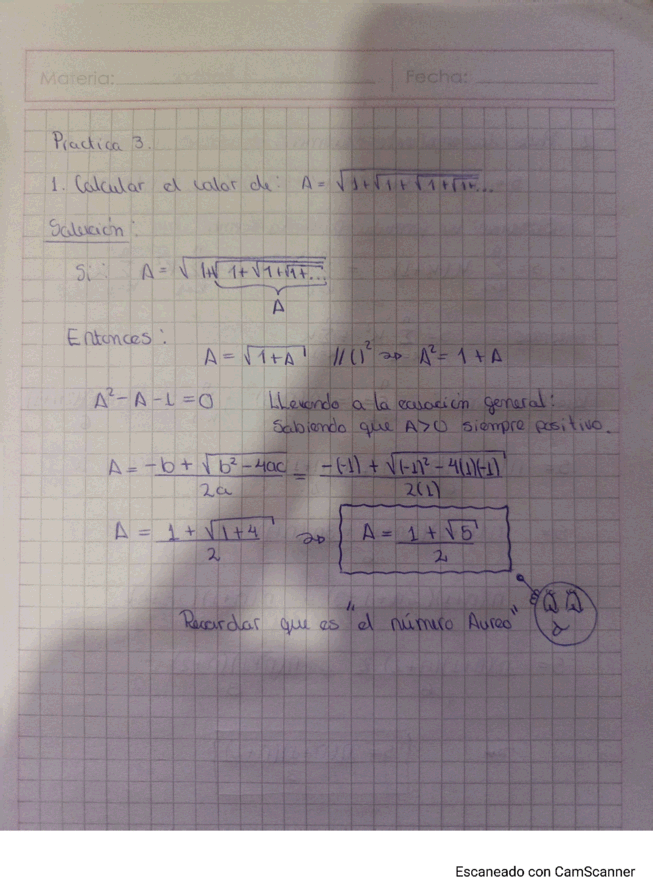 Materia: Fecha:
Practica 3.
1. Calcular el valor de: A = √1+√1+√1+√1+...
Solución:
Si: A = √1+√1+√1+√1+...
A
Entonces:
A = √1+A //()² => A² = 1 + A
A² - A - 1 = 0 Llevando a la ecuación general:
Sabiendo que A>0 siempre positivo.
A = -b + √b² - 4ac / 2a = -(-1) + √(-1)² - 4(1)(-1) / 2(1)
A = 1 + √1+4 / 2 => A = 1 + √5 / 2
Recordar que es "el número Aureo"
Escaneado con CamScanner